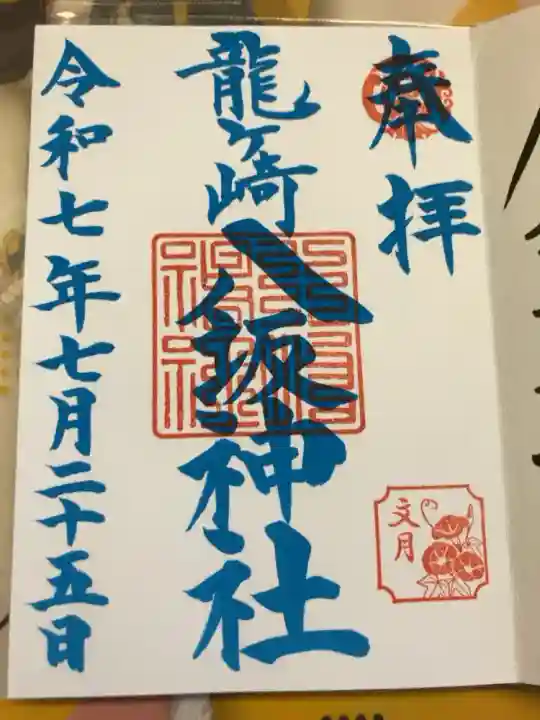 奉拝
龍ヶ崎八阪神社
令和七年七月二十五日
文月